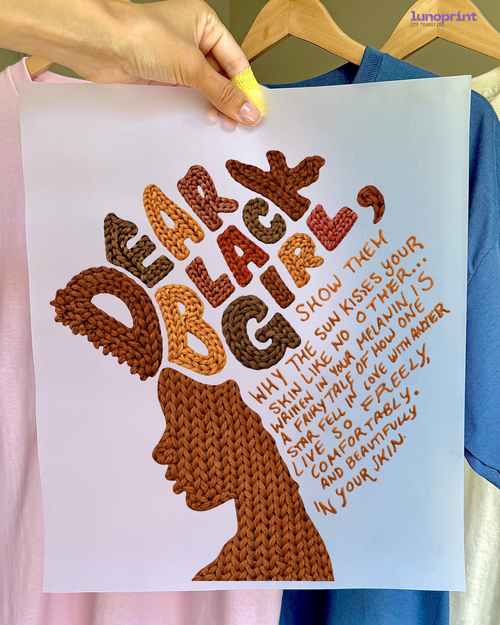 lunoprint
DTF TRANSFERS
DEAR
BLACK
GIRL,
SHOW THEM
WHY THE SUN KISSES YOUR
SKIN LIKE NO OTHER...
WRINEN IN YOUR MELANIN IS
A FAIRYTALE OF HOW ONE
STAR FELL IN LOVE WITH ANOTHER
LIVE SO FREELY,
COMFORTABLY.
AND BEAUTIFULLY
IN YOUR SKIN.